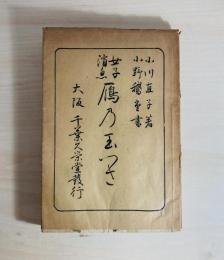 小川直子著
小野鵞堂書
女子消息
鴈乃玉つさ
大阪 千葉久栄堂發行